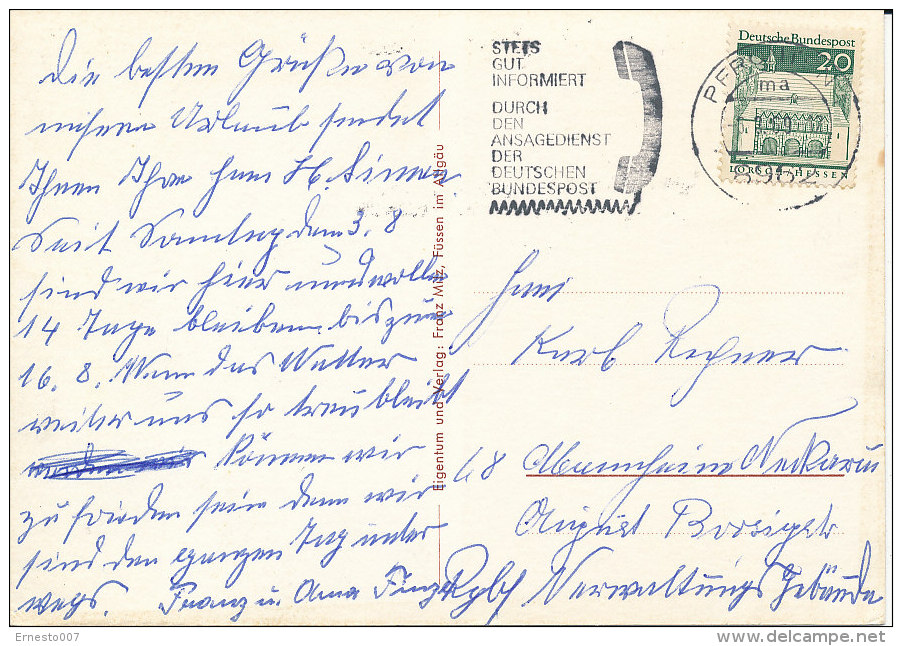 Die besten Grüße von
unserm Urlaub sendet
Ihnen Ihre Fam
Seit Samstag dem 3. 8
sind wir hier und wollen
14 Tage bleiben bis zum
16. 8. Wenn das Wetter
weiter uns so treu bleibt
können wir
zufrieden sein denn wir
sind den ganzen Tag unter
wegs. Franz u. Anna
Eigentum und Verlag: Franz Milz, Füssen im Allgäu
STETS
GUT
INFORMIERT
DURCH
DEN
ANSAGEDIENST
DER
DEUTSCHEN
BUNDESPOST
Deutsche Bundespost
20
LORSCH/HESSEN
Karl Rechner
68 Mannheim Neckarau
August Borsigstr
Verwaltungs Gebäude
Ernesto007
delcampe.net